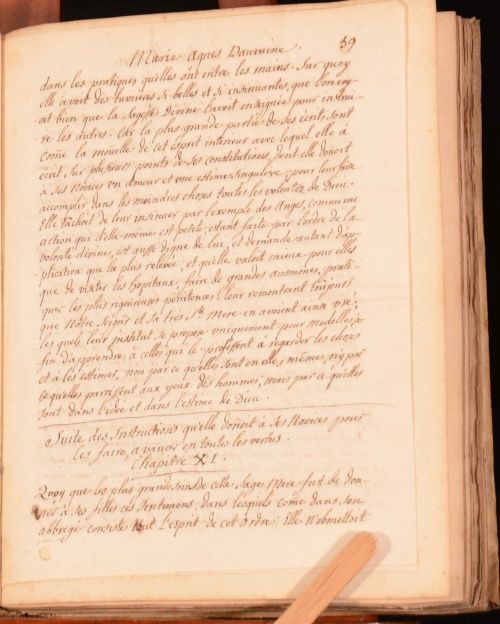 Marie Agnes Dauvaine. 59
dans les pratiques qu'elles ont entre les mains. Sur quoy
elle avoit des lumieres si belles et si insinuantes, que l'on voy
oit bien que la sagesse Divine l'avoit enseignée pour instrui-
re les autres. Car la plus grande partie de ses écrits sont
come la mouelle de cet esprit interieur avec lequel elle à
écrit sur plusieurs points de ses constitutions, dont elle donoit
à ses Novices un amour et une estime singuliere, pour leur faire
accomplir dans les moindres choses toutes les volontez de Dieu.
Elle tâchoit de leur insinuer par l'exemple des Anges, comme une
action qui d'elle même est petite, étant faite par l'ordre de la
volonté divine, est aussi digne de lui, et demande autant d'ap-
plication que la plus relevée; et qu'elle valoit mieux pour elles
que de visiter les hopitaux, faire de grandes aumônes, prati-
quer les plus rigoureuses penitences: leur remontrant toujours
que Nôtre Seigr et Sa très Ste Mere en avoient ainsi usé;
les quels leur institut se propose uniquement pour modelles, a
fin d'apprendre à celles qui le professent à regarder les choses
et à les estimer, non par ce qu'elles sont en elles mêmes, ny par
ce qu'elles paroissent aux yeux des hommes; mais par ce qu'elles
sont dans l'idée et dans l'estime de Dieu.
Suite des Instructions qu'elle donoit à ses Novices pour
les faire avancer en toutes les vertus.
Chapitre XI.
Quoy que les plus grands soins de cette sage Mere fust de don-
ner à ses filles ces sentimens, dans lesquels come dans son
abbregé consiste tout l'esprit de cet Ordre: Elle n'obmettoit